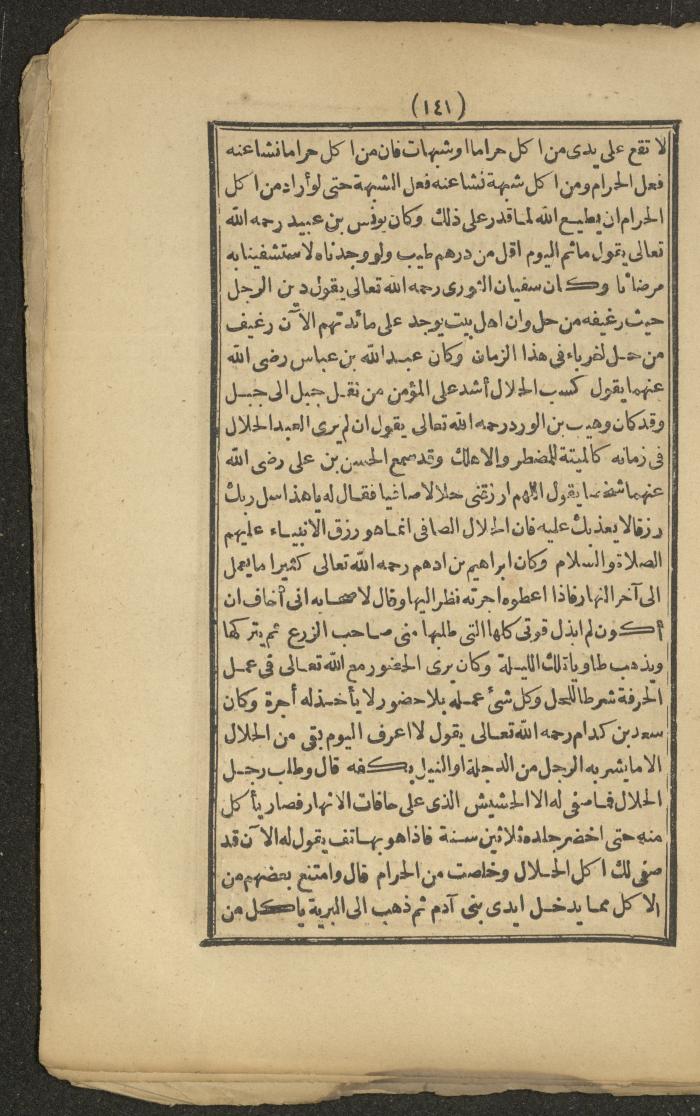 (١٤١)
لا تقع على يدى من اكل حراما اوشبهات فان من اكل حراما نشاعنه
فعل الحرام ومن اكل شبهة نشاعنه فعل الشبهة حتى لو أراد من اكل
الحرام ان يطيع الله لما قدر على ذلك وكان يونس بن عبيد رحمه الله
تعالى يقول ما ثم اليوم اقل من درهم طيب ولو وجدناه لاستشفينا به
مرضانا وكان سفيان الثورى رحمه الله تعالى يقول دين الرجل
حيث رغيفه من حل وان اهل بيت يوجد على مائدتهم الآن رغيف
من حل لغرباء فى هذا الزمان وكان عبد الله بن عباس رضى الله
عنهما يقول كسب الحلال أشد على المؤمن من نقل جبل الى جبل
وقد كان وهيب بن الورد رحمه الله تعالى يقول ان لم يرى العبد الحلال
فى زمانه كالميتة للمضطر والاهلك وقد سمع الحسن بن على رضى الله
عنهما شخصا يقول اللهم ارزقنى حلالا صافيا فقال له يا هذا سل ربك
رزقا لا يعذبك عليه فان الحلال الصافى انما هو رزق الانبياء عليهم
الصلاة والسلام وكان ابراهيم بن ادهم رحمه الله تعالى كثيرا ما يعمل
الى آخر النهار فاذا اعطوه اجرته نظر اليها وقال لاصحابه انى أخاف ان
أكون لم ابذل قوتى كلها التى طلبها منى صاحب الزرع ثم يتركها
ويذهب طاويا تلك الليلة وكان يرى الحضور مع الله تعالى فى عمل
الحرفة شرطا للحل وكل شئ عمله بلا حضور لا يأخذ له أجرة وكان
سعد بن كدام رحمه الله تعالى يقول لا اعرف اليوم بقى من الحلال
الا ما يشربه الرجل من الدجلة او النيل بكفه قال وطلب رجل
الحلال فما صفى له الا الحشيش الذى على حافات الانهار فصار يأكل
منه حتى اخضر جلده ثلاثين سنة فاذا هو بهاتف يقول له الآن قد
صفى لك اكل الحلال وخلصت من الحرام قال وامتنع بعضهم من
الاكل مما يدخل ايدى بنى آدم ثم ذهب الى البرية ياكل من